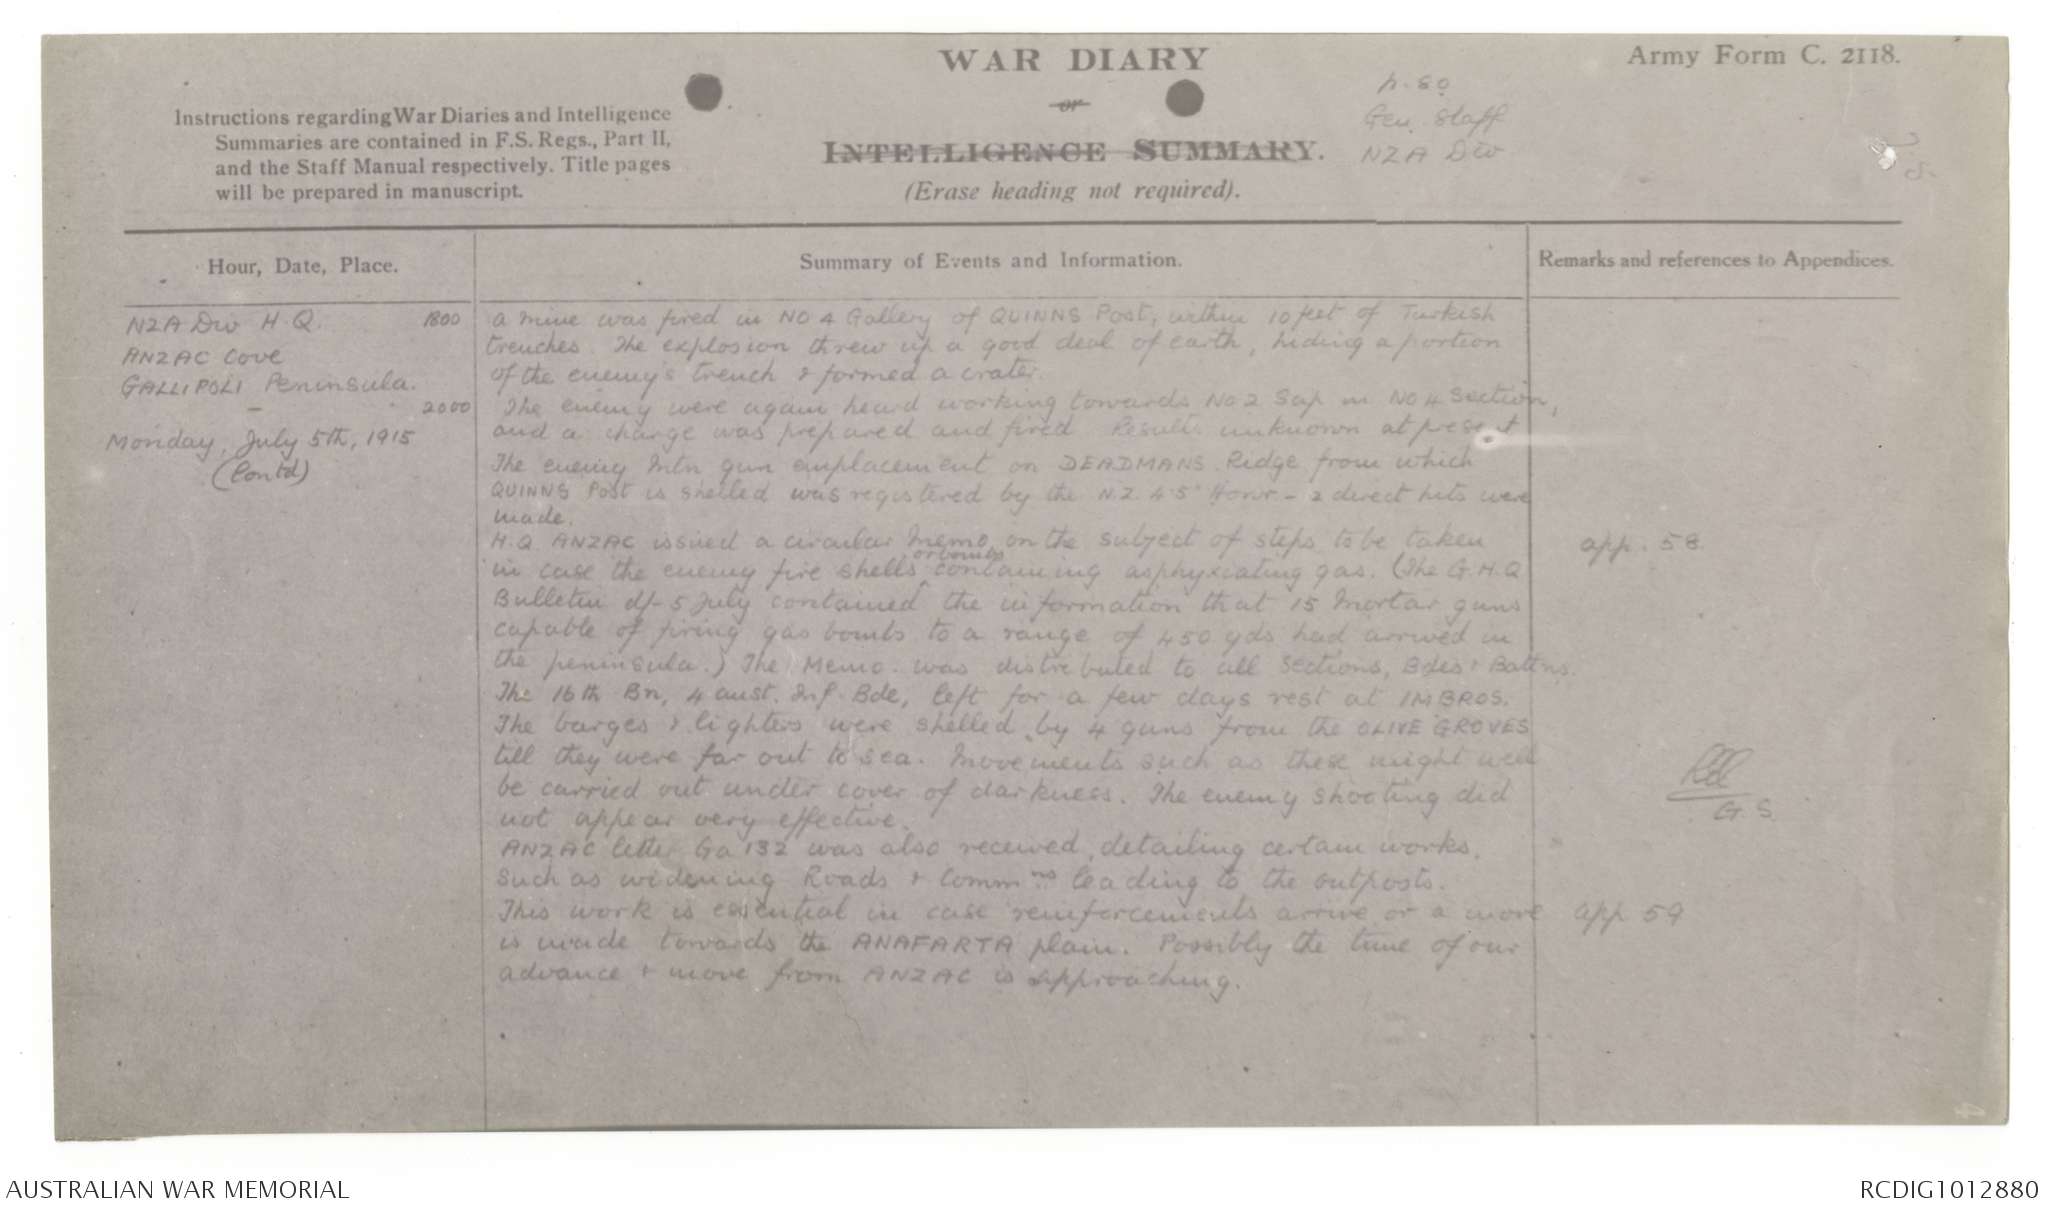 WAR DIARY
or
INTELLIGENCE SUMMARY.
(Erase heading not required).
Army Form C. 2118.
p. 50
Gen. Staff
NZA Div
Instructions regarding War Diaries and Intelligence
Summaries are contained in F.S. Regs., Part II,
and the Staff Manual respectively. Title pages
will be prepared in manuscript.
Hour, Date, Place.
Summary of Events and Information.
Remarks and references to Appendices.
NZA Div H.Q. 1800
ANZAC Cove
GALLIPOLI Peninsula.
2000
Monday, July 5th, 1915
(Contd)
a mine was fired in NO 4 Gallery of QUINNS Post, within 10 feet of Turkish
trenches. The explosion threw up a good deal of earth, hiding a portion
of the enemy's trench & formed a crater.
The enemy were again heard working towards No 2 Sap in NO 4 Section,
and a charge was prepared and fired. Results unknown at present
The enemy Mtn gun emplacement on DEADMANS Ridge from which
QUINNS Post is shelled was registered by the N.Z. 4.5" Howr - 2 direct hits were
made.
H.Q. ANZAC issued a circular memo on the subject of steps to be taken
in case the enemy fire shells or bombs containing asphyxiating gas. (The G.H.Q
Bulletin of 5 July contained the information that 15 Mortar guns
capable of firing gas bombs to a range of 450 yds had arrived in
the peninsula.) The Memo. was distributed to all Sections, Bdes & Battns.
The 16th Bn, 4 Aust. Inf. Bde, left for a few days rest at IMBROS.
The barges & lighters were shelled by 4 guns from the OLIVE GROVES
till they were far out to sea. Movements such as these might well
be carried out under cover of darkness. The enemy shooting did
not appear very effective.
ANZAC letter Ga 132 was also received, detailing certain works,
such as widening Roads & Commns leading to the outposts.
This work is essential in case reinforcements arrive or a move
is made towards the ANAFARTA plain. Possibly the time of our
advance & move from ANZAC is approaching.
app. 58
G.S.
app 59
AUSTRALIAN WAR MEMORIAL
RCDIG1012880